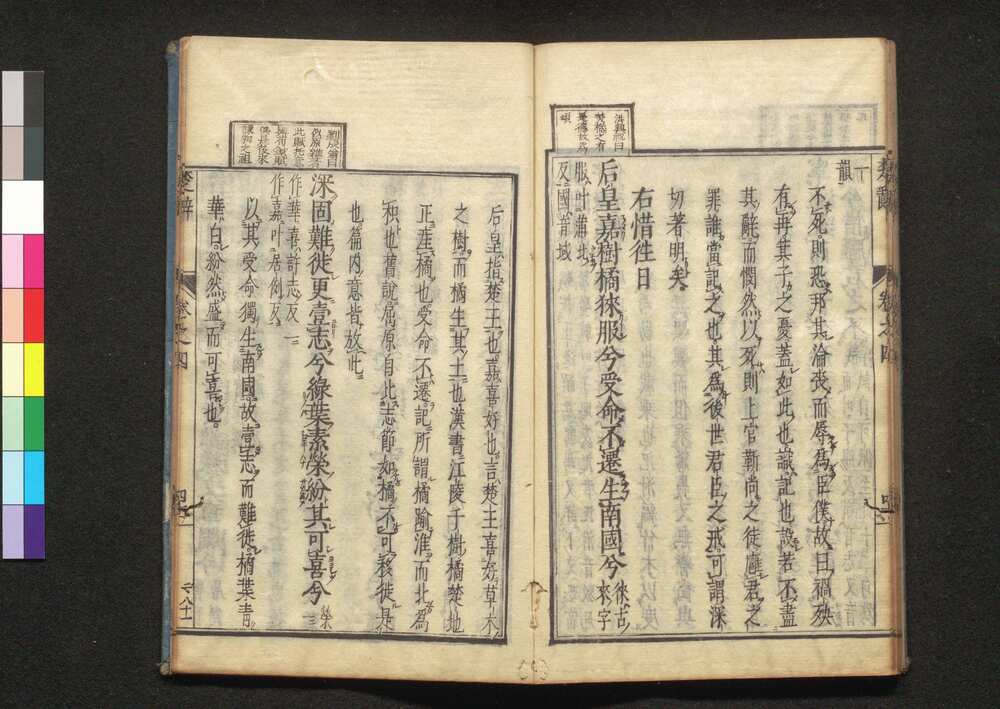 不死則恐邦其淪喪而辱為臣僕故曰禍殃
有再其子之憂蓋如此也識記也設若不盡
其辭而閔然以死則上官靳尚之徒壅君之
罪誰當記之也其為後世君臣之戒可謂深
切著明矣
右惜往日
后皇嘉樹橘徠服兮受命不遷生南國兮徠古
來字
服叶蒲北
反國音域
洪興祖曰
美橘之有
是德故為
頌
后皇指楚王也嘉喜好也言楚王喜好草木
之樹而橘生其土也漢書江陵千樹橘楚地
正產橘也受命不遷記所謂橘踰淮而北為
枳也舊說屈原自比志節如橘不可移徙是
也篇內意皆放此
深固難徙更壹志兮綠葉素榮紛其可喜兮榮一
作華喜許志反一
作嘉叶居例反
以其受命獨生南國故壹志而難徙橘葉青
華白紛然盛而可喜也
楚辭
卷之四